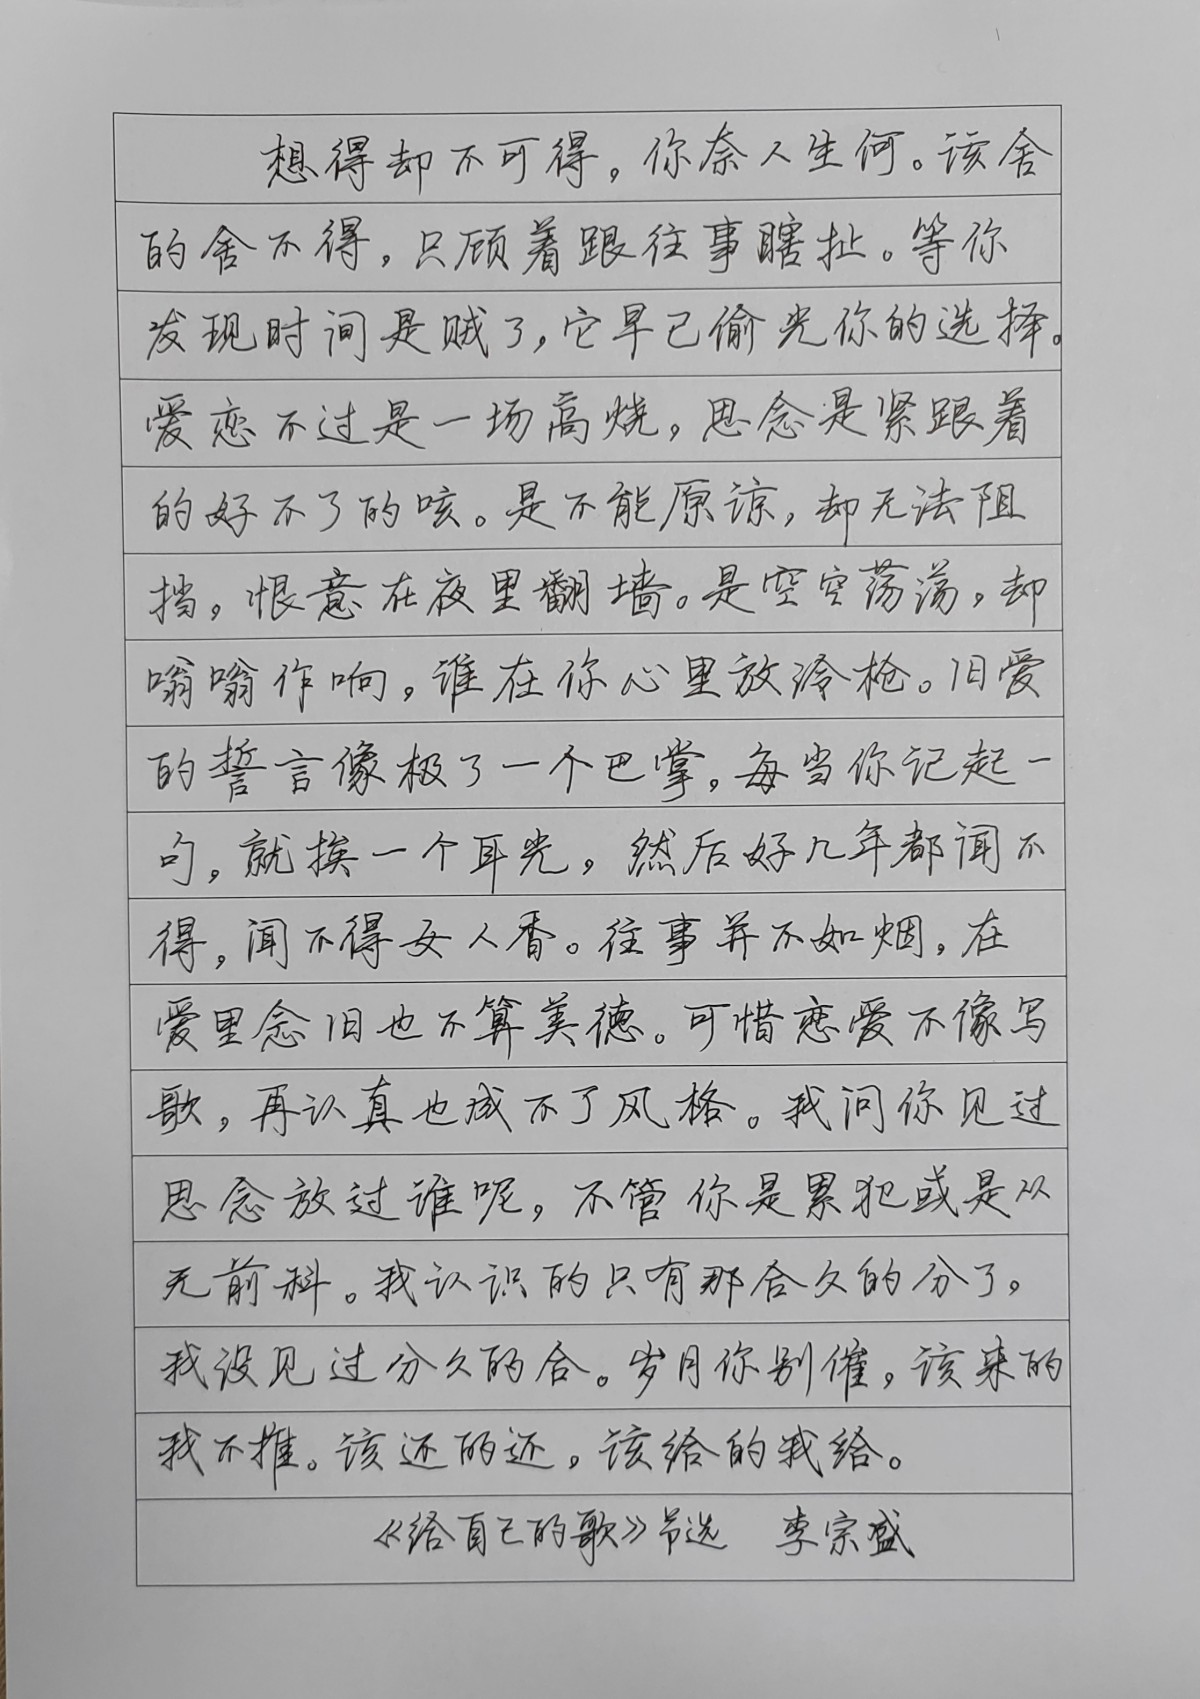 想得却不可得，你奈人生何。该舍
的舍不得，只顾着跟往事瞎扯。等你
发现时间是贼了，它早已偷光你的选择。
爱恋不过是一场高烧，思念是紧跟着
的好不了的咳。是不能原谅，却无法阻
挡，恨意在夜里翻墙。是空空荡荡，却
嗡嗡作响，谁在你心里放冷枪。旧爱
的誓言像极了一个巴掌，每当你记起一
句，就挨一个耳光，然后好几年都闻不
得，闻不得女人香。往事并不如烟，在
爱里念旧也不算美德。可惜恋爱不像写
歌，再认真也成不了风格。我问你见过
思念放过谁呢，不管你是累犯或是从
无前科。我认识的只有那合久的分了，
我没见过分久的合。岁月你别催，该来的
我不推。该还的还，该给的我给。
《给自己的歌》节选 李宗盛